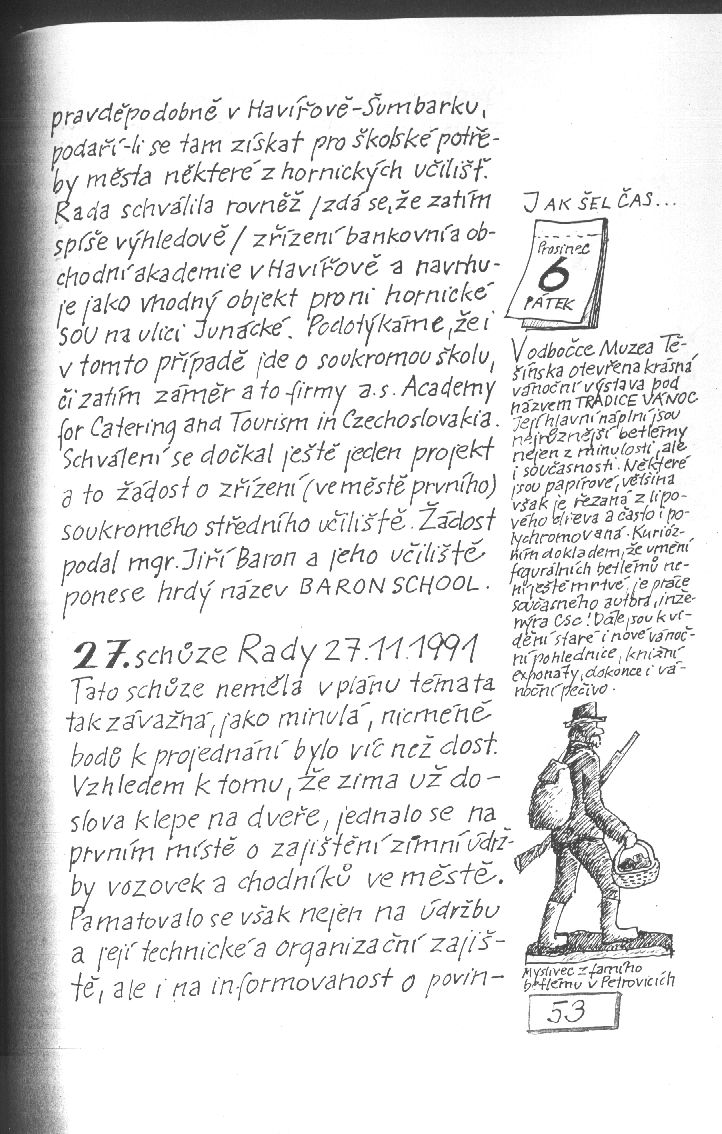 pravděpodobně v Havířově-Šumbarku,
podaří-li se tam získat pro školské potře-
by města některé z hornických učilišť.
Rada schválila rovněž /zdá se, že zatím
spíše výhledově/ zřízení bankovní a ob-
chodní akademie v Havířově a navrhu-
je jako vhodný objekt pro ni hornické
SOU na ulici Junácké. Podotýkáme, že i
v tomto případě jde o soukromou školu,
či zatím záměr a to firmy a.s. Academy
for Catering and Tourism in Czechoslovakia.
Schválení se dočkal ještě jeden projekt
a to žádost o zřízení (ve městě prvního)
soukromého středního učiliště. Žádost
podal mgr. Jiří Baron a jeho učiliště
ponese hrdý název BARON SCHOOL.
27. schůze Rady 27.11.1991
Tato schůze neměla v plánu témata
tak závažná, jako minulá, nicméně
bodů k projednání bylo víc než dost.
Vzhledem k tomu, že zima už do-
slova klepe na dveře, jednalo se na
prvním místě o zajištění zimní údrž-
by vozovek a chodníků ve městě.
Pamatovalo se však nejen na údržbu
a její technické a organizační zajiš-
tě, ale i na informovanost o povin-
JAK ŠEL ČAS...
Prosinec
6
PÁTEK
V odbočce Muzea Tě-
šínska otevřena krásná
vánoční výstava pod
názvem TRADICE VÁNOC.
Její hlavní náplní jsou
nejrůznější betlémy
nejen z minulosti, ale
i současnosti. Některé
jsou papírové, většina
však je řezaná z lipo-
vého dřeva a často i po-
lychromovaná. Kurióz-
ním dokladem, že umění
figurálních betlémů ne-
ní ještě mrtvé, je práce
současného autora, inže-
nýra CSc! Dále jsou k vi-
dění staré i nové vánoč-
ní pohlednice, knižní
exponáty, dokonce i vá-
noční pečivo.
Myslivec z farního
betlému v Petrovicích
53